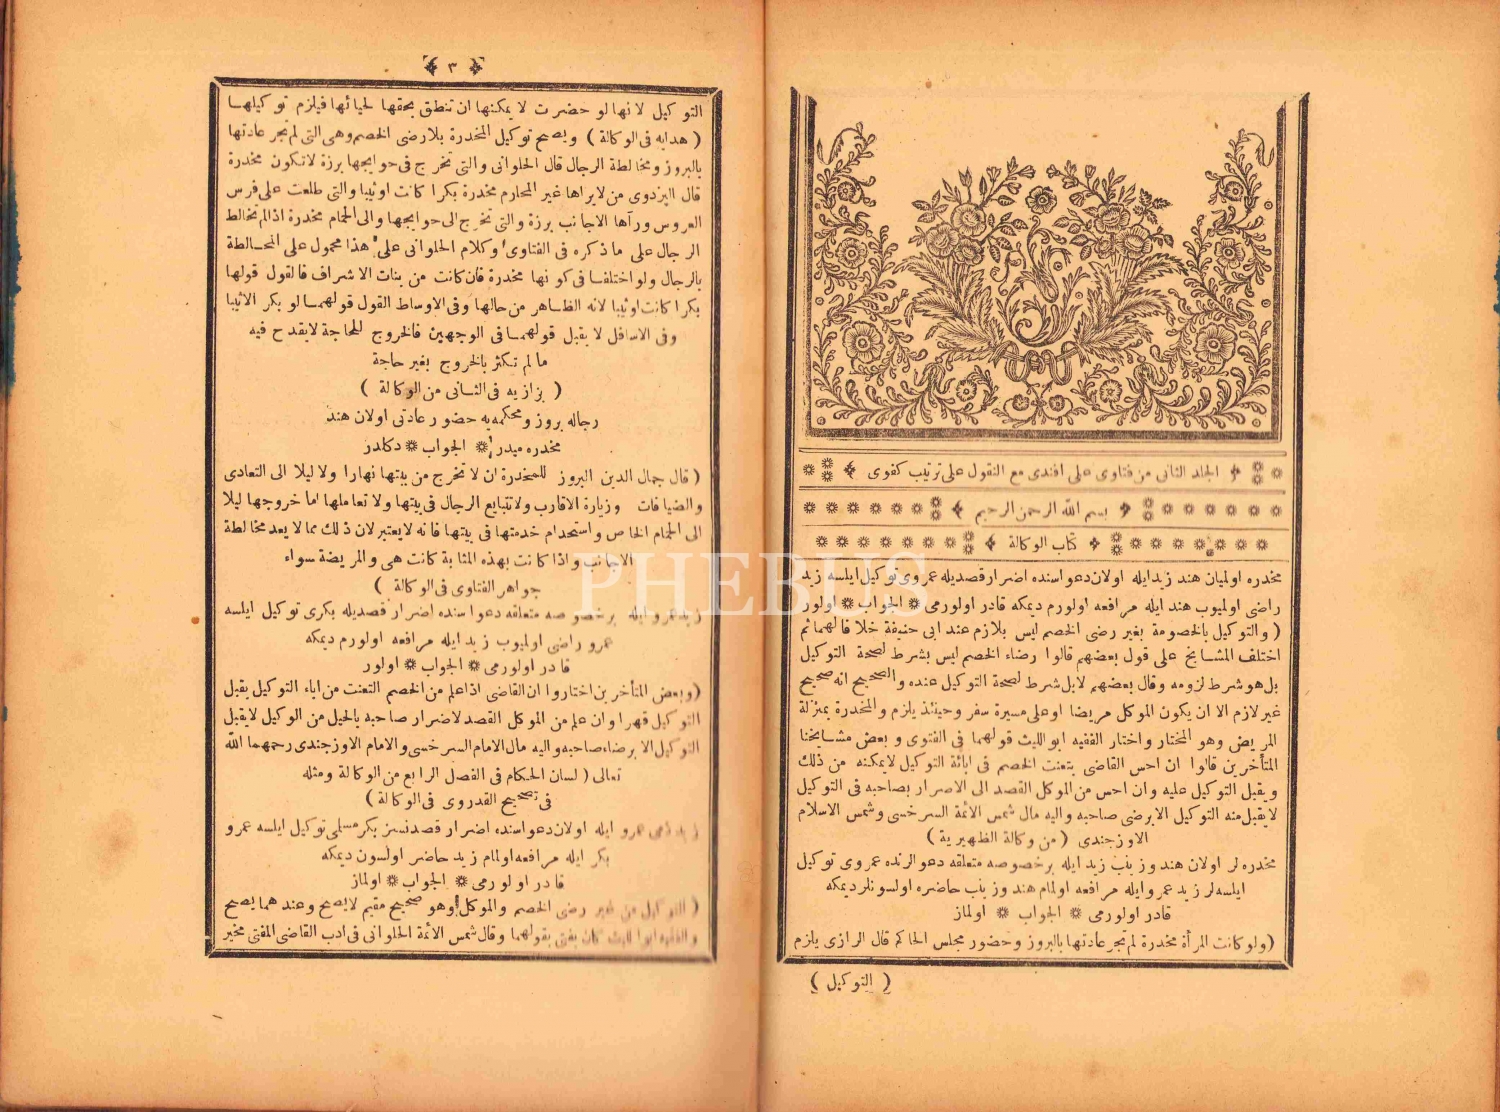 الجلد الثانى من فتاوى على افندى مع النقول على ترتيب كفوى
بسم الله الرحمن الرحيم
كتاب الوكالة
مخدره اولميان هند زيد ايله اولان دعواسنده اضرار قصديله عمروى توكيل ايلسه زيد
راضى اولميوب هند ايله مرافعه اولورم ديمكه قادر اولورمى الجواب اولور
( والتوكيل بالخصومة بغير رضى الخصم ليس بلازم عند ابى حنيفة خلافا لهما ثم
اختلف المشايخ على قول بعضهم قالوا رضاء الخصم ليس بشرط لصحة التوكيل
بل هو شرط لزومه وقال بعضهم لابل شرط لصحة التوكيل عنده والصحيح انه صحيح
غير لازم الا ان يكون الموكل مريضا او على مسيرة سفر وحينئذ يلزم والمخدرة بمنزلة
المريض وهو المختار واختار الفقيه ابو الليث قولهما فى الفتوى و بعض مشايخنا
المتأخرين قالوا ان احس القاضى بتعنت الخصم فى ابائه التوكيل لايمكنه من ذلك
ويقبل التوكيل عليه وان احس من الموكل القصد الى الاضرار بصاحبه فى التوكيل
لايقبل منه التوكيل الابرضى صاحبه واليه مال شمس الأئمة السرخسى وشمس الاسلام
الاوزجندى ( من وكالة الظهيرية )
مخدره لر اولان هند و زينب زيد ايله برخصوصه متعلقه دعوالرنده عمروى توكيل
ايلسه لر زيد عمرو ايله مرافعه اولمام هند و زينب حاضره اولسونلر ديمكه
قادر اولورمى الجواب اولماز
( ولو كانت المرأة مخدرة لم تجر عادتها بالبروز وحضور مجلس الحاكم قال الرازى يلزم
( التوكيل )
٣
التوكيل لانها لو حضرت لا يمكنها ان تنطق بحقها لحيائها فيلزم توكيلها
( هدايه فى الوكالة ) ويصح توكيل المخدرة بلارضى الخصم وهى التى لم تجر عادتها
بالبروز ومخالطة الرجال قال الحلوانى والتى تخرج فى حوايجها برزة لاتكون مخدرة
قال البزدوى من لايراها غير المحارم مخدرة بكرا كانت او ثيبا والتى طلعت على فرس
العروس ورآها الاجانب برزة والتى تخرج الى حوايجها والى الحمام مخدرة اذا لم تخالط
الرجال على ما ذكره فى الفتاوى وكلام الحلوانى على هذا محمول على المخالطة
بالرجال ولو اختلفا فى كونها مخدرة فان كانت من بنات الاشراف فالقول قولها
بكرا كانت او ثيبا لانه الظاهر من حالها وفى الاوساط القول قولهما لو بكر الاثيبا
وفى الاسافل لا يقبل قولهما فى الوجهين فالخروج للحاجة لايقدح فيه
مالم تكثر بالخروج بغير حاجة
( بزازيه فى الثانى من الوكالة )
رجاله بروز و محكمه يه حضور عادتى اولان هند
مخدره ميدر الجواب دكلدر
( قال جمال الدين البروز للمخدرة ان لا تخرج من بيتها نهارا ولا ليلا الى التعادى
والضيافات وزيارة الاقارب ولا تتبايع الرجال فى بيتها ولا تعاملها اما خروجها ليلا
الى الحمام الخاص واستخدام خدمتها فى بيتها فانه لايعتبر لان ذلك مما لا يعد مخالطة
الاجانب واذا كانت بهذه المثابة كانت هى والمريضة سواء
جواهر الفتاوى فى الوكالة )
زيد عمرو ايله برخصوصه متعلقه دعواسنده اضرار قصديله بكرى توكيل ايلسه
عمرو راضى اولميوب زيد ايله مرافعه اولورم ديمكه
قادر اولورمى الجواب اولور
( وبعض المتأخرين اختاروا ان القاضى اذا علم من الخصم التعنت من اباء التوكيل يقبل
التوكيل قهرا وان علم من الموكل القصد لاضرار صاحبه بالحيل من الوكيل لايقبل
التوكيل الا برضاء صاحبه واليه مال الامام السرخسى والامام الاوزجندى رحمهما الله
تعالى ( لسان الحكام فى الفصل الرابع من الوكالة ومثله
فى تصحيح القدروى فى الوكالة )
زيد ذمى عمرو ايله اولان دعواسنده اضرار قصدنسز بكر مسلمى توكيل ايلسه عمرو
بكر ايله مرافعه اولمام زيد حاضر اولسون ديمكه
قادر اولورمى الجواب اولماز
( التوكيل من غير رضى الخصم والموكل وهو صحيح مقيم لايصح وعندهما يصح
والفقيه ابو الليث كان يفتى بقولهما وقال شمس الأئمة الحلوانى فى ادب القاضى المفتى مخير
PHEBUS